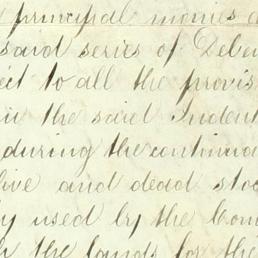 principal monies
said series of Debe
ect to all the provis
in the said Indent
during the continua
live and dead stoc
y used by the Com
h the lands for the